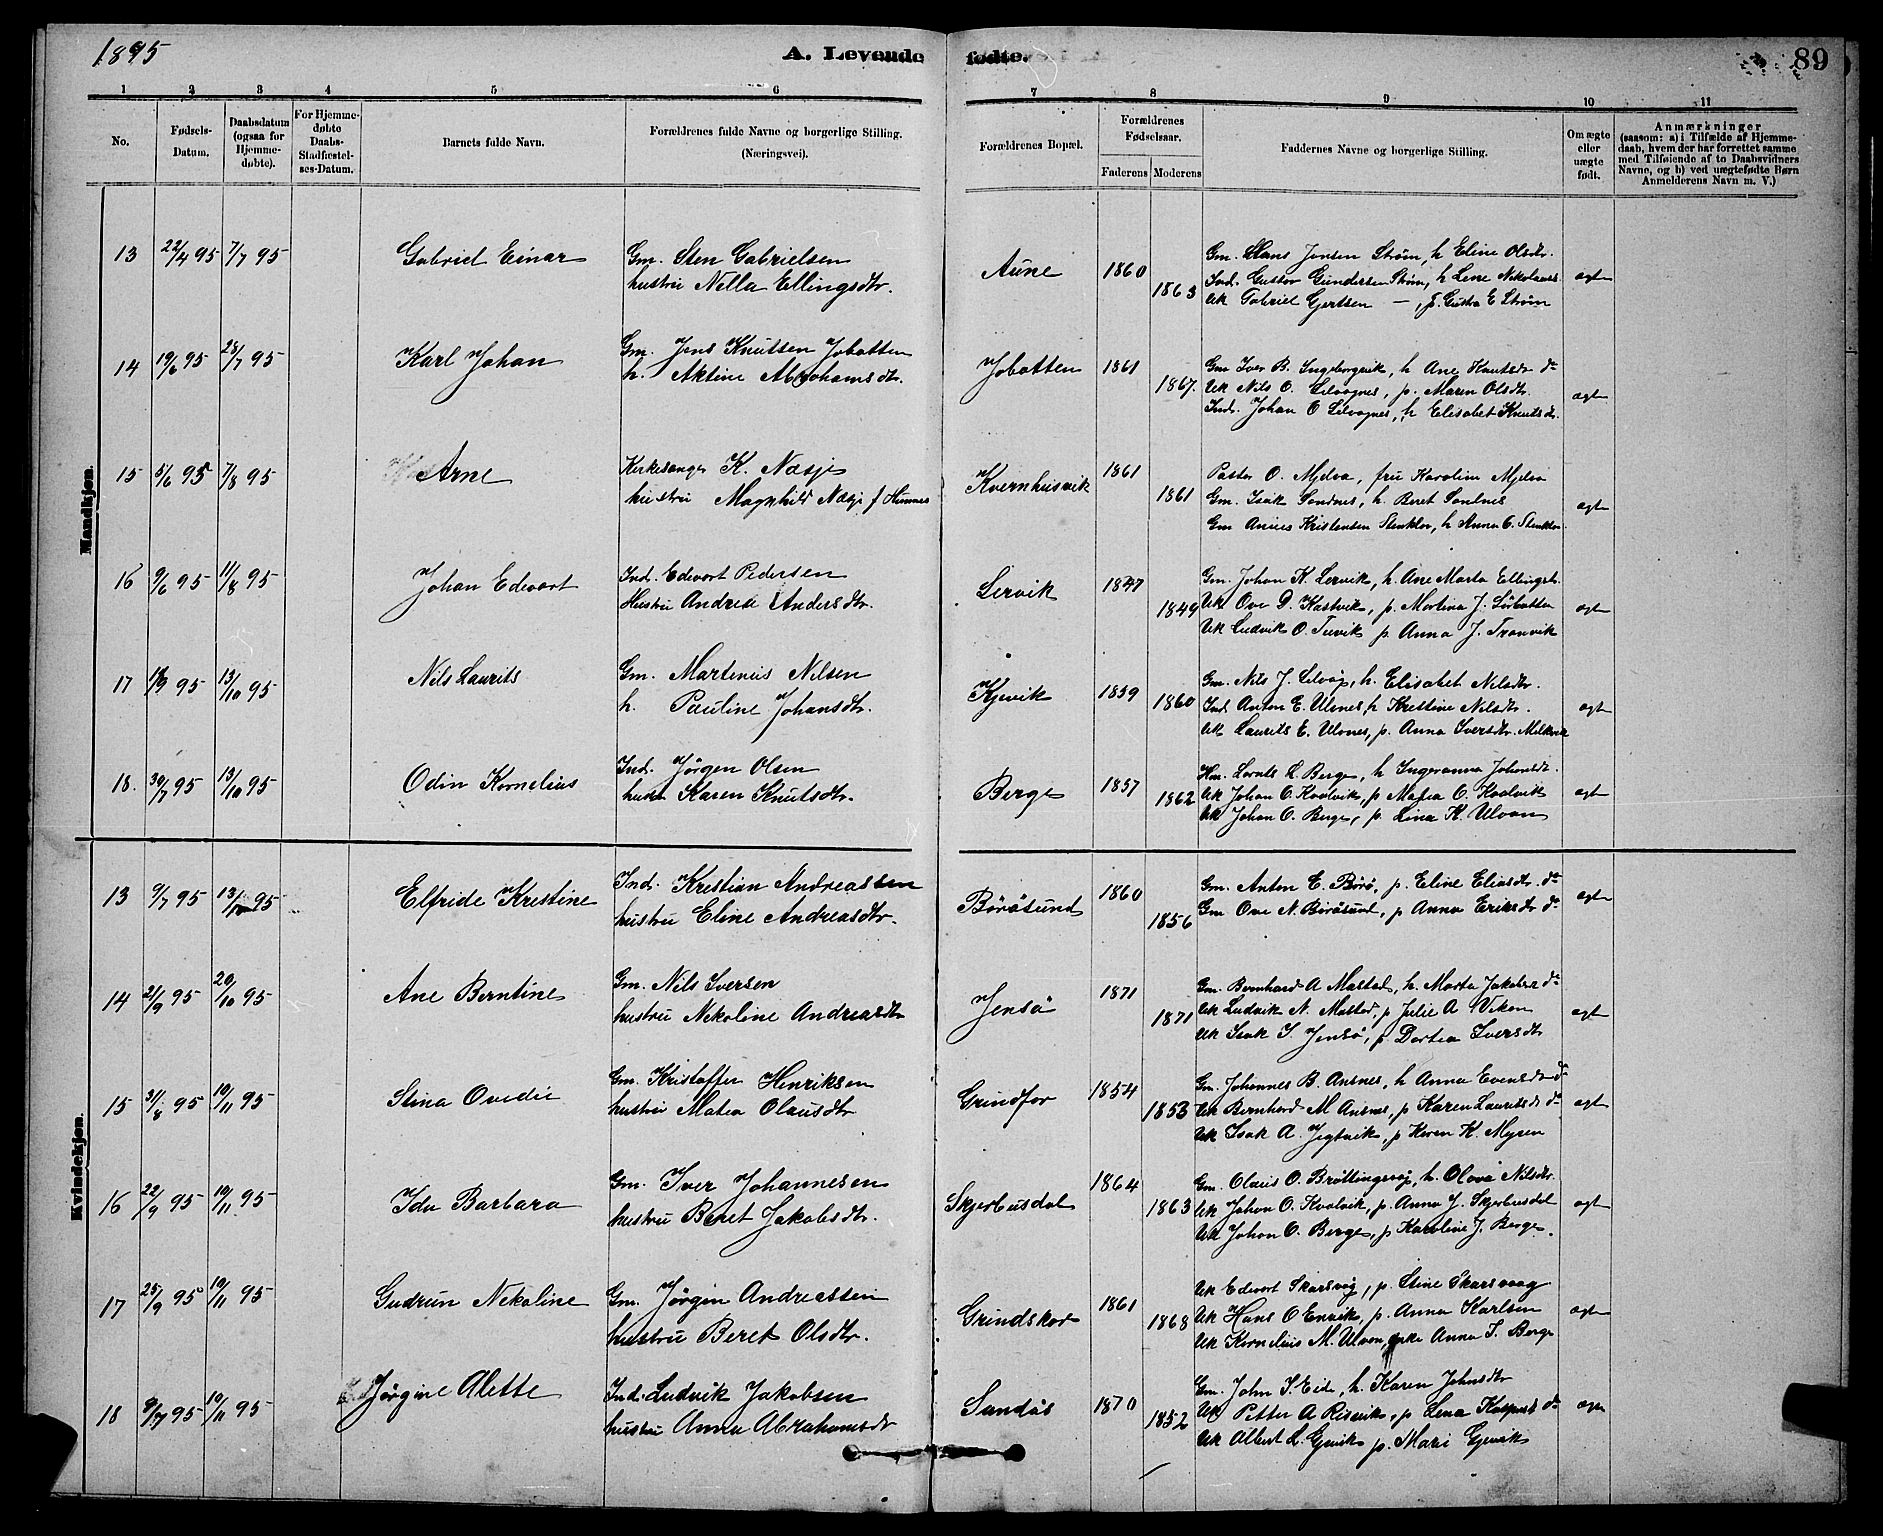 1895
A. Levende fødte.
89
1 2 3 4 5 6 7 8 9 10 11
No.
Fødsels-Datum.
Daabsdatum (ogsaa for Hjemme-døbte).
For Hjemme-døbte Daabs-Stadfæstel-ses-Datum.
Barnets fulde Navn.
Forældrenes fulde Navne og borgerlige Stilling. (Næringsvei).
Forældrenes Bopæl.
Forældrenes Fødselsaar.
Faderens Moderens
Faddernes Navne og borgerlige Stilling.
Om ægte eller uægte født.
Anmærkninger (saasom: a) i Tilfælde af Hjemme-daab, hvem der har forrettet samme med Tilføiende af to Daabsvidners Navne, og b) ved uægtefødte Børn Anmelderens Navn m. V.)
Mandkjøn.
13 22/4 95 7/7 95 Gabriel Einar Gm. Sten Gabrielsen Aune 1860 Gm. Hans Jensen Strøm, h Eline Olsdtr.
hustru Nella Ellingsdtr. 1863 Ind. Gustav Gundersen Strøm, h Lene Nikolausd. ægte
Uk Gabriel Gjertsen — , p. Gustva E Strøm
14 19/6 95 28/7 95 Karl Johan Gm. Jens Knutsen Jobotten Jobotten 1861 Gm Iver B. Ingeborgvik, h Ane Knutsdtr do
h. Aktine Abrahamsdtr. 1867. Uk Nils O. Selvagnes, p. Maren Olsdtr.
Ind. Johan O Selvagnes, h Elisabet Knutsdtr. ægte
15 5/6 95 7/8 95 Arne Kirkesanger K. Næsje Kvernhusvik 1861 Pastor O. Mjelva, fru Karoline Mjelva
hustru Magnhild Næsje f Himnes 1861 Gm. Isak Sandnes, h. Beret Sandnes ægte
Gm Anius Kristensen Stenklov, h Anna C. Stenklov.
16 9/6 95 11/8 95 Johan Edvart Ind. Edvart Pedersen Lervik 1847 Gm. Johan K. Lervik, h. Ane Marta Ellingsd.
Hustru Andrea Andersdtr. 1849 Uk Ove D. Kastvik, p. Martina J. Sørbotten ægte
Uk Ludvik O. Tuvik p. Anna J. Tranvik
17 95 13/10 95 Nils Laurits Gm. Martenus Nilsen Kjevik 1859 Gm. Nils J. Selvåg, h. Elisabet Nilsdtr.
h. Pauline Johansdtr. 1860 Ind. Anton E. Ulvnes, h Kristine Nilsdtr. ægte
Uk Laurits E. Ulvnes, p. Anna Iversdtr.
18. 30/7 95 13/10 95 Odin Kornelius Ind. Jørgen Olsen Berge 1857 L. Berge, h Ingeranna Johansdtr.
hustr Karen Knutsdtr. 1862 Uk Johan O. Kvalvik, p Matea O. Kvalvik ægte
Uk Johan O. Berge, p. Lina K. Ulvan
Kvindekjøn.
13 9/7 95 13/10 95 Elfride Kristine Ind. Kristian Andreassen Børøsund 1860 Gm. Anton E. Børø, p. Eline Eliasdtr. do
hustru Eline Andreasdtr. 1856 Gm Ove N. Børøsund, p Anna Eriksdtr do ægte
14 21/9 95 20/10 95 Ane Berntine Gm. Nils Iversen Jensø 1871 Gm. Bernhard A Mastad, h. Marta Jakobsd do
hustru Nekoline Andreasdtr 1871 Uk Ludvik N. Mastad, p Julie A Viken ægte
Uk Isak I. Jensø, p. Dortea Iversdtr
15 31/8 95 10/11 95 Stina Ovedie Gm. Kristoffer Henriksen Grindfor 1854 Gm. Johannes B. Ansnes, h Anna Evensdtr do
hustru Matea Olausdtr 1853 Uk Bernhard M Ansnes, p Karen Lauritsd do ægte
Uk Isak A. Jegtvik, p Karen K. Myren
16 22/9 95 10/11 95 Ida Barbara Gm. Iver Johannesen Skjerbusdal 1864 Gm. Olaus O. Brøttingsvåg, h. Olava Nilsdtr.
hustru Beret Jakobsdtr. 1863 Uk Johan O. Kvalvik, p. Anna J. Skjerbusdal ægt
Uk Johan O. Berge, p Karoline J. Berge.
17 25/9 95 10/11 95 Gudrun Nekoline Gm. Jørgen Andreassen Grindskar 1861 Uk Edvart Skarsvåg, p. Stine Skarsvaag
hustru Beret Olsdtr. 1868 Uk Hans O Envik, p. Anna Karlsen ægte
Uk Kornelius M. Ulvan, enke Anna I. Berge
18 8/7 95 10/11 95 Jørgine Alette Ind. Ludvik Jakobsen Sundås 1870 Gm. John S. Eide, h. Karen Johnsdtr
hustru Anna Abrahamsdtr 1852 Uk Petter A Risvik, p Lena Kaspersd do ægte
Uk Albert L. Gjevik p. Mari Gjevik